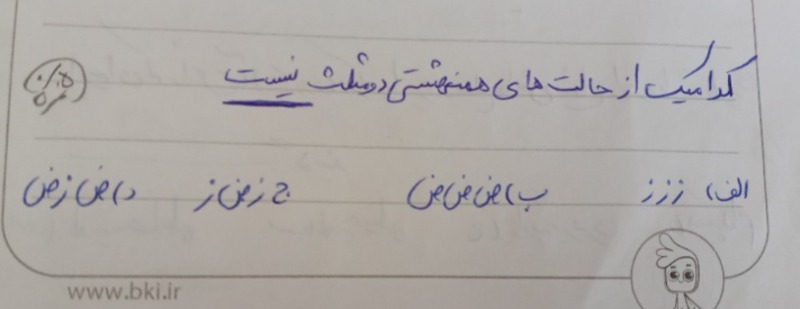 کدامیک از حالت های همنهشتی دو مثلث نیست
الف) ززز ب) ض ض ض ج ز ض ز د) ض ز ض
www.bki.ir